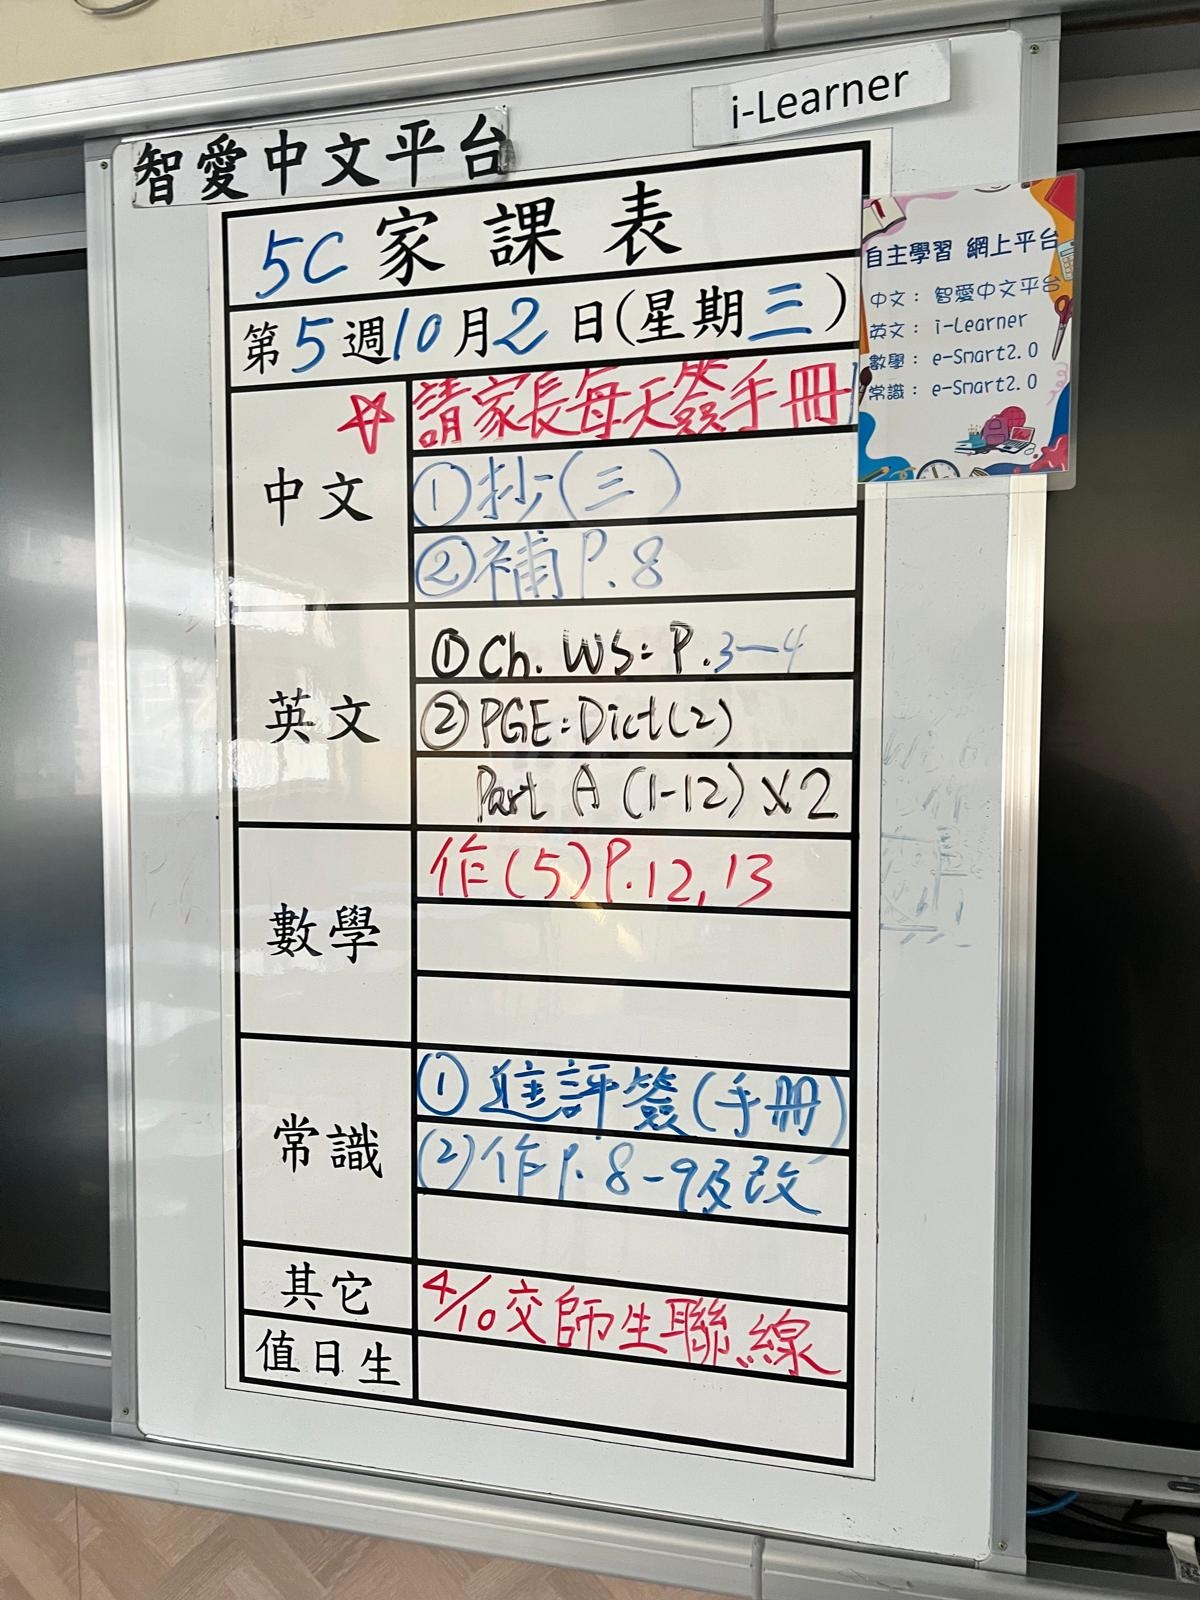 智愛中文平台
i-Learner
5C 家課表
第5週10月2日(星期三)
中文
☆請家長每天簽手冊
①抄(三)
②補P.8
英文
①Ch. WS: P.3-4
②PGE: Dict(2)
Part A (1-12) x2
數學
作(5)P.12, 13
常識
①進評簽(手冊)
(2)作P.8-9及改
其它
4/10交師生聯線
值日生
自主學習 網上平台
中文：智愛中文平台
英文：i-Learner
數學：e-Smart2.0
常識：e-Smart2.0